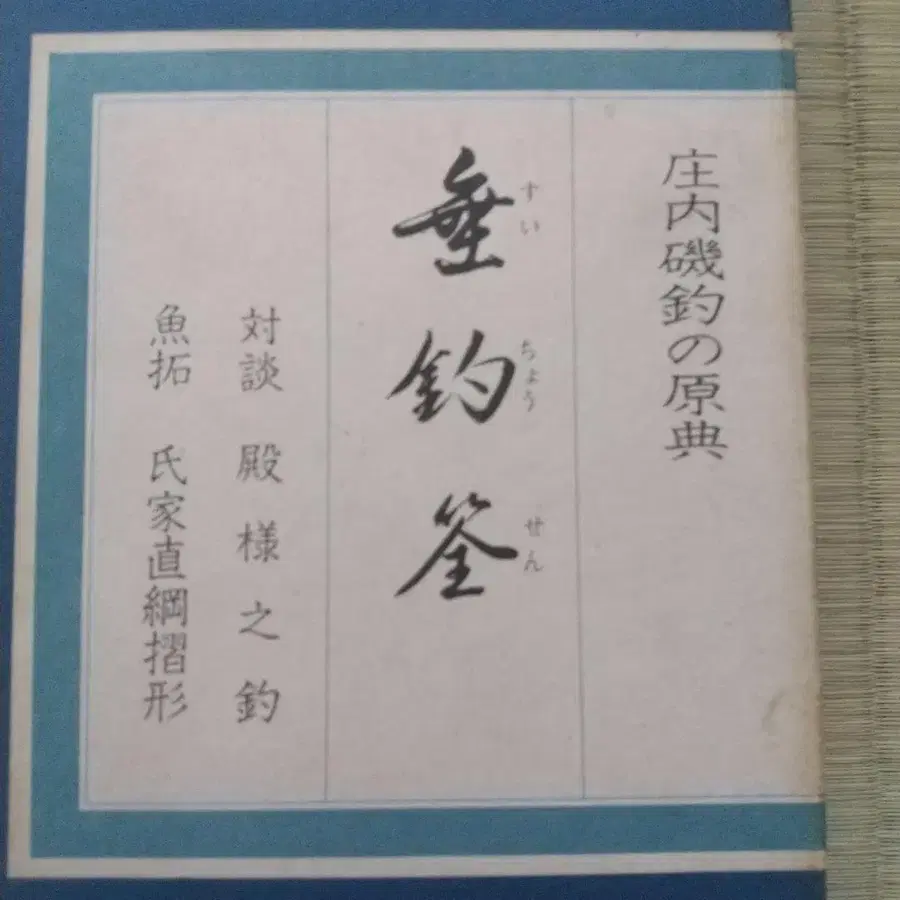 庄内磯釣の原典
垂釣筌
すい ちょう せん
対談 殿様之釣
魚拓 氏家直綱摺形